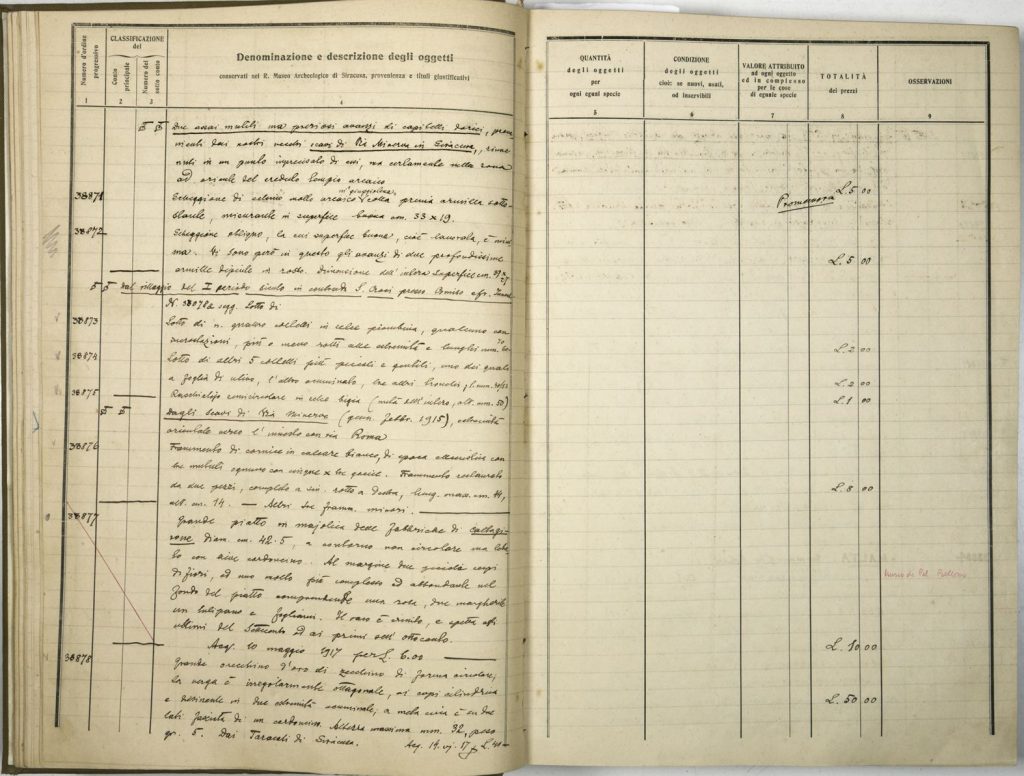 Numero d'ordine progressivo
CLASSIFICAZIONE del
Conto principale
Numero del sottoconto
Denominazione e descrizione degli oggetti
conservati nel R. Museo Archeologico di Siracusa, provenienza e titoli giustificativi
1 2 3 4
Due assai mutili ma preziosi avanzi di capitelli dorici, prove-
nienti dai nostri vecchi scavi di Via Minerva in Siracusa, rinve-
nuti in un punto imprecisato di essi, ma certamente nella zona
ad oriente del creduto tempio arcaico
38871
Scheggione di echino molto arcaico colla prima armilla sotto-
stante, misurante in superficie buona cm. 33 x 19.
38872
Scheggione obliquo, la cui superficie buona, cioè lavorata, è mini-
ma. Vi sono però in questo gli avanzi di due profondissime
armille dipinte in rosso. Dimensione dell'intera superficie cm.
Dal villaggio del I periodo siculo in contrada
N. segg. Lotto di
38873
Lotto di n. quattro coltelli in selce piombina, qualcuno con
incrostazioni, più o meno rotti alle estremità e lunghi mm.
38874
Lotto di altri 5 coltelli più piccoli e gentili, uno dei quali
a foglia di ulivo, l'altro acuminato, tre altri tronchi, l. mm.
38875
Raschietojo semicircolare in selce bigia (metà dell'intero, alt. mm. 50)
Dagli scavi di Via Minerva (genn. febbr. 1915), estremità
orientale verso l'innesto con via Roma
38876
Frammento di cornice in calcare bianco, di epoca
tre mutuli ognuno con cinque x tre goccie. Frammento restaurato
da due pezzi, completo a sin. rotto a destra, lung. mass. cm. 44,
alt. cm. 14. — Altri tre framm. minori.
38877
Grande piatto in majolica delle fabbriche di Caltagi-
rone diam. cm. 42.5, a contorno non circolare ma loba-
to con cordoncino. Al margine due piccoli cespi
di fiori, ed uno molto più complesso ed abbondante nel
fondo del piatto comprendente una rosa, due margherite
un tulipano e fogliami. Il vaso è crinito, e spetta agli
ultimi del Settecento od ai primi dell'ottocento.
Acq. 10 maggio 1917 per L. 6.00
38878
Grande orecchino d'oro di zecchino di forma circolare;
la verga è irregolarmente ottagonale, ai capi cilindrica
e desinente in due estremità acuminate, a metà circa è su due
lati fasciata di un cordoncino. Altezza massima mm. 32, peso
gr. 5. Dai Taracati di Siracusa.
Acq. 19. VI. 17 p. L.
QUANTITÀ
degli oggetti
per
ogni eguai specie
CONDIZIONE
degli oggetti
cioè: se nuovi, usati,
od inservibili
VALORE ATTRIBUITO
ad ogni oggetto
ed in complesso
per le cose
di eguale specie
TOTALITÀ
dei prezzi
OSSERVAZIONI
5 6 7 8 9
L. 5 00
Promemoria
L. 5 00
L. 2 00
L. 2 00
L. 1 00
L. 8 00
Museo di Pal. Bellomo
L. 10 00
L. 50 00